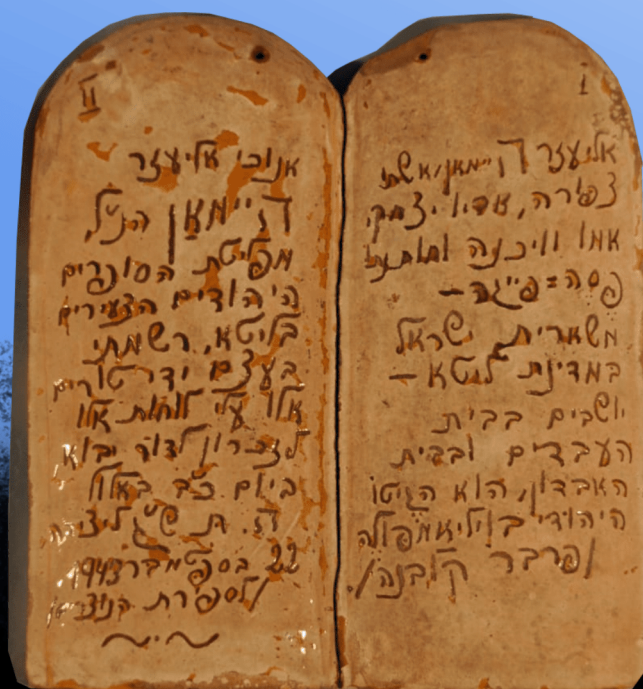 I
אליעזר היימאן, אשתו
צפורה, אביו יצחק,
אמו וויכנה וחותנתו
פסה=פייגה –
משארית ישראל
במדינת ליטא –
יושבים בבית
העבדים ובבית
האבדון, הוא הגיטו
היהודי בוויליאמפולה
/פרבר קובנה/.
II
אנוכי אליעזר
היימאן הנ״ל,
מפליטת הסופרים
היהודים הצעירים
בליטא, רשמתי
בעצם ידי טורים
אלו עלי לוחות אלו
לזכרון לדור יבוא
ביום כ״ב באלול
ה. ת ש״ג ליצירה
22 בספטמבר 1943
/לספירת הנוצרים/